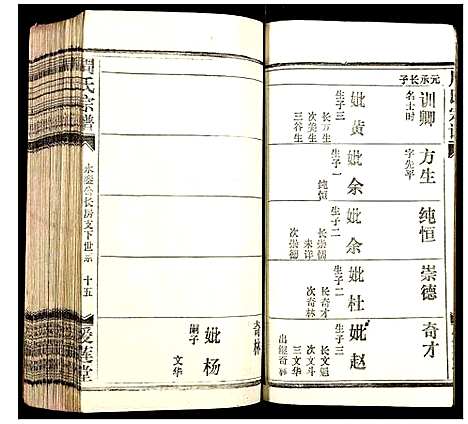 元承长子
训卿
名士时
妣黄
生子三
长方生
次美生
三谷生
方生
字先平
妣余
生子一
纯恒
纯恒
妣余
生子二
长崇儒
未详
次崇德
崇德
妣杜
生子二
长奇才
次奇林
奇才
妣赵
生子三
长文魁
次文斗
三文华
出继奇林
奇林
妣杨
嗣子
文华
周氏宗谱
长房支下世系
十五
爱莲堂